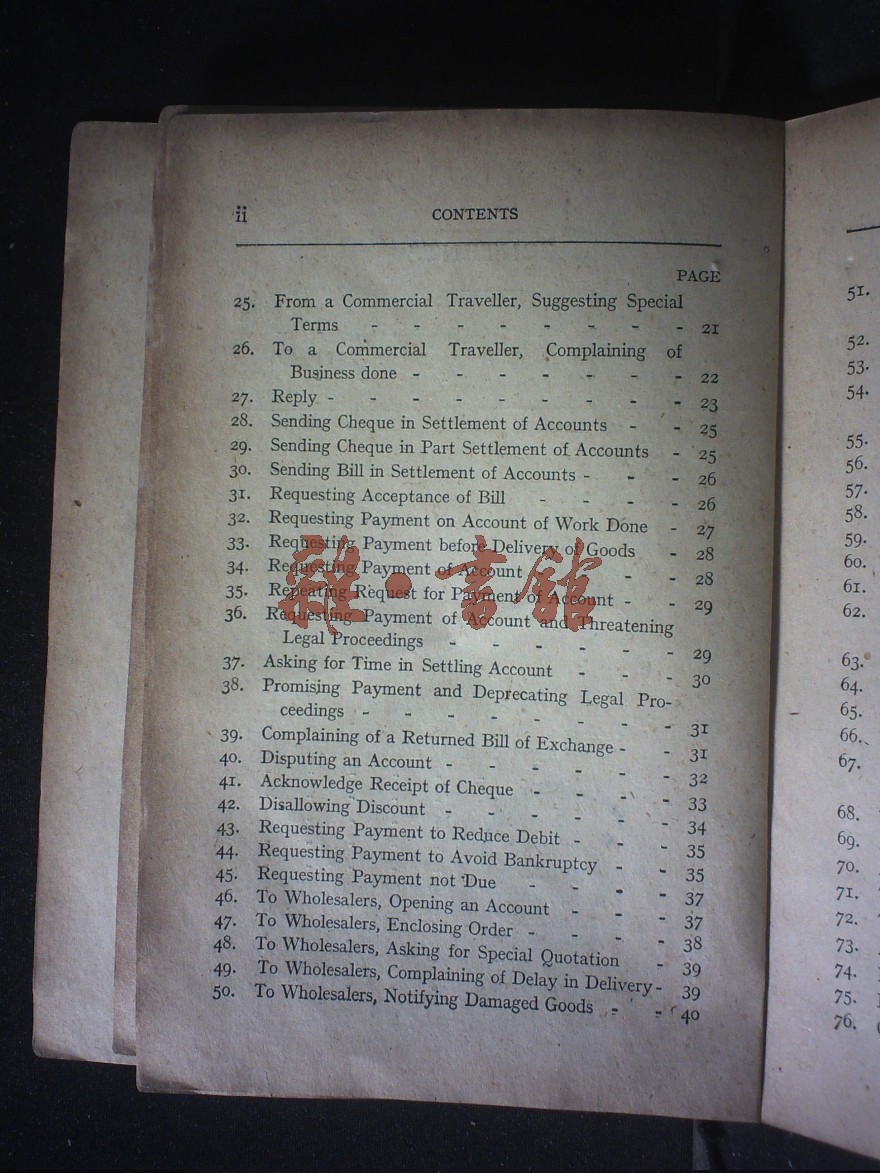 ii CONTENTS
PAGE
25. From a Commercial Traveller, Suggesting Special
Terms - - - - - - - - 21
26. To a Commercial Traveller, Complaining of
Business done - - - - - - - 22
27. Reply - - - - - - - - - 23
28. Sending Cheque in Settlement of Accounts - - 25
29. Sending Cheque in Part Settlement of Accounts - 25
30. Sending Bill in Settlement of Accounts - - - 26
31. Requesting Acceptance of Bill - - - - 26
32. Requesting Payment on Account of Work Done - 27
33. Requesting Payment before Delivery of Goods - 28
34. Requesting Payment of Account - - - 28
35. Repeating Request for Payment of Account - - 29
36. Requesting Payment of Account and Threatening
Legal Proceedings - - - - - - 29
37. Asking for Time in Settling Account - - - 30
38. Promising Payment and Deprecating Legal Pro-
ceedings - - - - - - - - 31
39. Complaining of a Returned Bill of Exchange - - 31
40. Disputing an Account - - - - - - 32
41. Acknowledge Receipt of Cheque - - - - 33
42. Disallowing Discount - - - - - - 34
43. Requesting Payment to Reduce Debit - - - 35
44. Requesting Payment to Avoid Bankruptcy - - 35
45. Requesting Payment not Due - - - - 37
46. To Wholesalers, Opening an Account - - - 37
47. To Wholesalers, Enclosing Order - - - - 38
48. To Wholesalers, Asking for Special Quotation - 39
49. To Wholesalers, Complaining of Delay in Delivery - 39
50. To Wholesalers, Notifying Damaged Goods - - 40
雜·書館
51.
52.
53.
54.
55.
56.
57.
58.
59.
60.
61.
62.
63.
64.
65.
66.
67.
68.
69.
70.
71.
72.
73.
74.
75.
76.